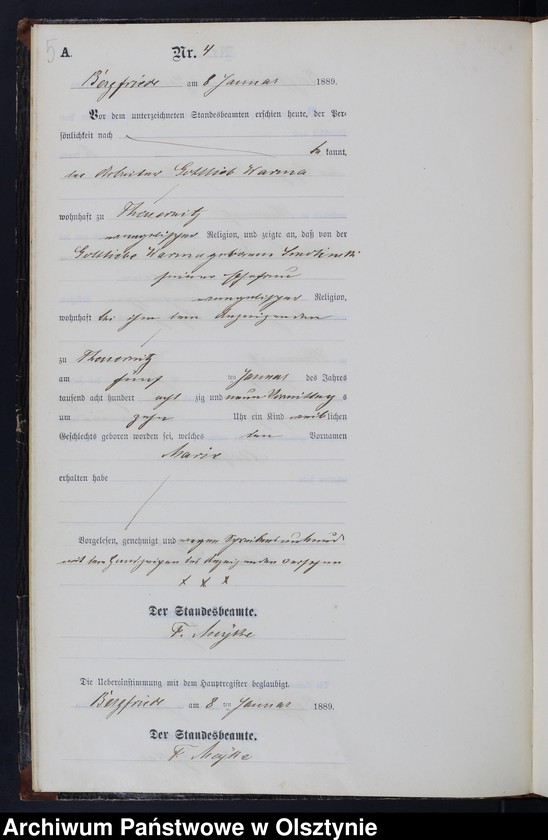 5 A. Nr. 4
Bergfriede am 8 Januar 1889.
Vor dem unterzeichneten Standesbeamten erschien heute, der Per-
sönlichkeit nach
be kannt,
der Arbeiter Gottlieb Warma
wohnhaft zu Theuernitz
evangelischer Religion, und zeigte an, daß von der
Gottliebe Warma geborene
seiner Ehefrau
evangelischer Religion,
wohnhaft bei ihm dem Anzeigenden
zu Theuernitz
am fünf ten Januar des Jahres
tausend acht hundert acht zig und neun Vormittag s
um zehn Uhr ein Kind weib lichen
Geschlechts geboren worden sei, welches den Vornamen
Marie
erhalten habe
Vorgelesen, genehmigt und wegen Schreibensunkunde
mit den Handzeichen des Anzeigenden versehen
x x x
Der Standesbeamte.
F.
Die Uebereinstimmung mit dem Hauptregister beglaubigt.
Bergfriede am 8 ten Januar 1889.
Der Standesbeamte.
F.
Archiwum Państwowe w Olsztynie